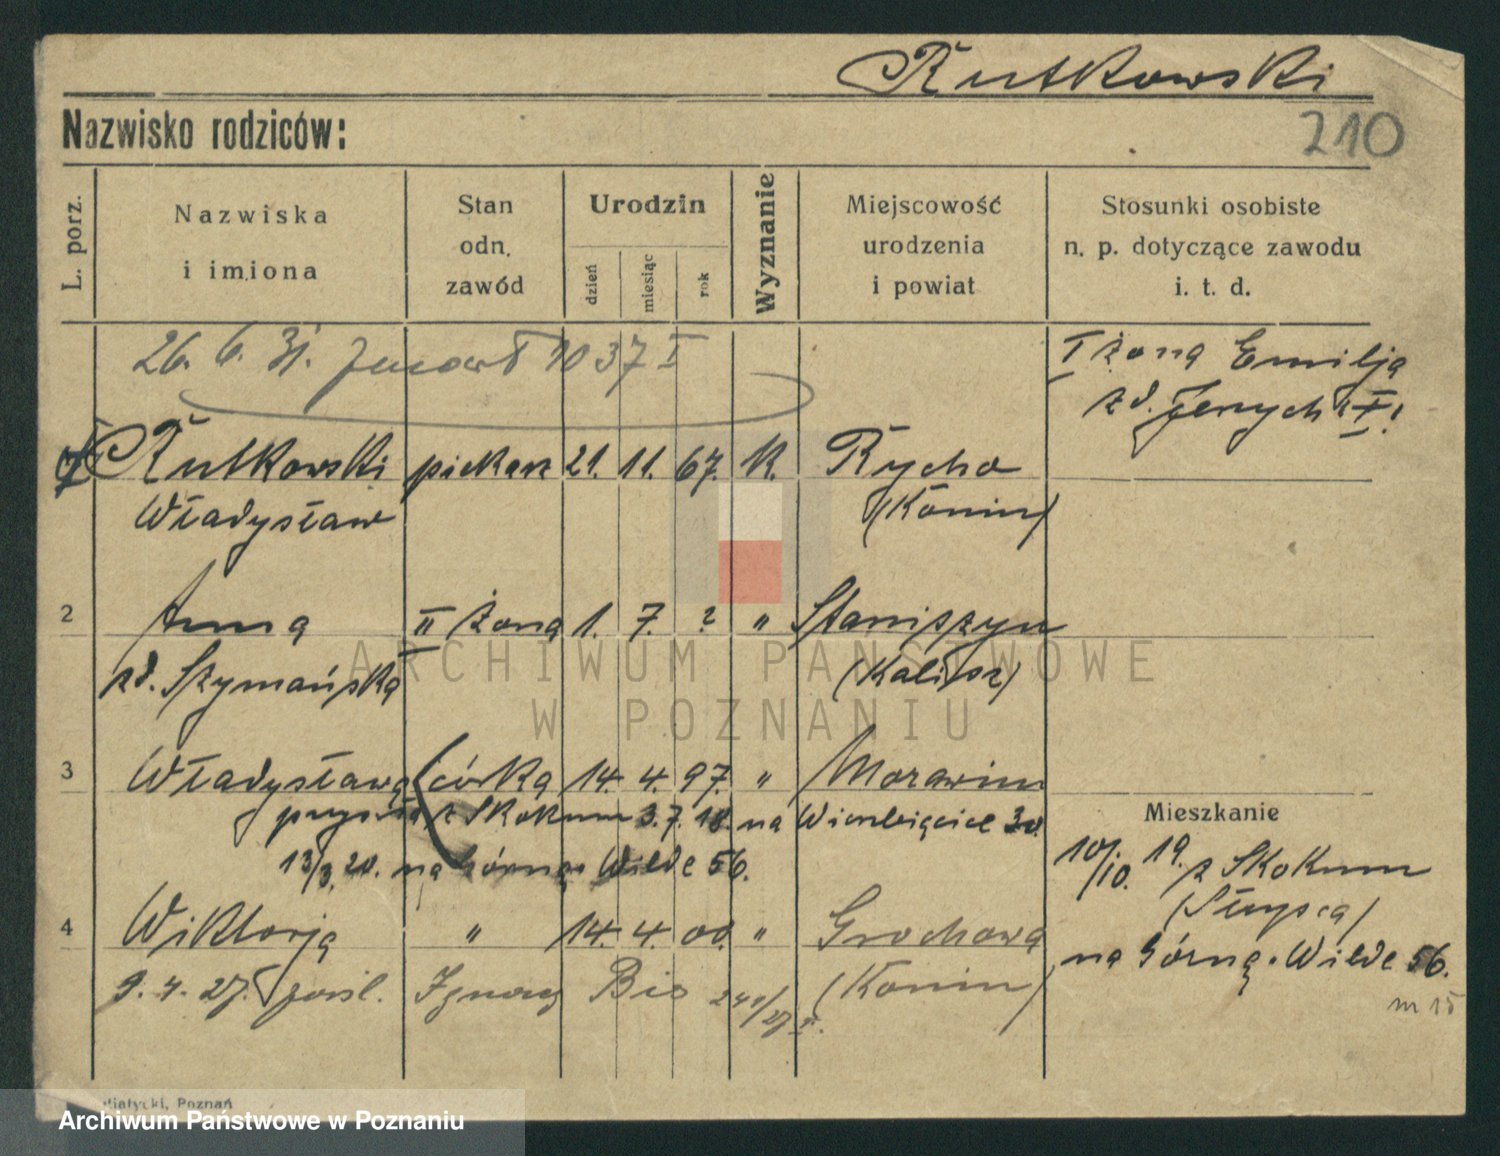 Rutkowski
Nazwisko rodziców:
210
L. porz.
Nazwiska
i imiona
Stan
odn.
zawód
Urodzin
dzień
miesiąc
rok
Wyznanie
Miejscowość
urodzenia
i powiat
Stosunki osobiste
n. p. dotyczące zawodu
i. t. d.
26. 6. 31. 1037 I
I żona Emilja
zd. Jerych
Rutkowski piekarz 21. 11. 67. K. Rycho
Władysław (Konin)
2 Anna II żona 1. 7. ? " Staniszyn
zd. Szymańska (Kalisz)
3 Władysława córka 14. 4. 97. " Morawin
z Skokum 3. 7. 18. na Wierbięcice 30.
13/3. 20. na Górna Wilde 56.
Mieszkanie
10/10. 19. z Skokum
(Słupca)
na Górna Wilde 56.
m 15
4 Wiktorja " 14. 4. 00. " Grochowa
9. 4. 27. pośl. Ignacy Bis (Konin)
ARCHIWUM PAŃSTWOWE
W POZNANIU
Poznań
Archiwum Państwowe w Poznaniu